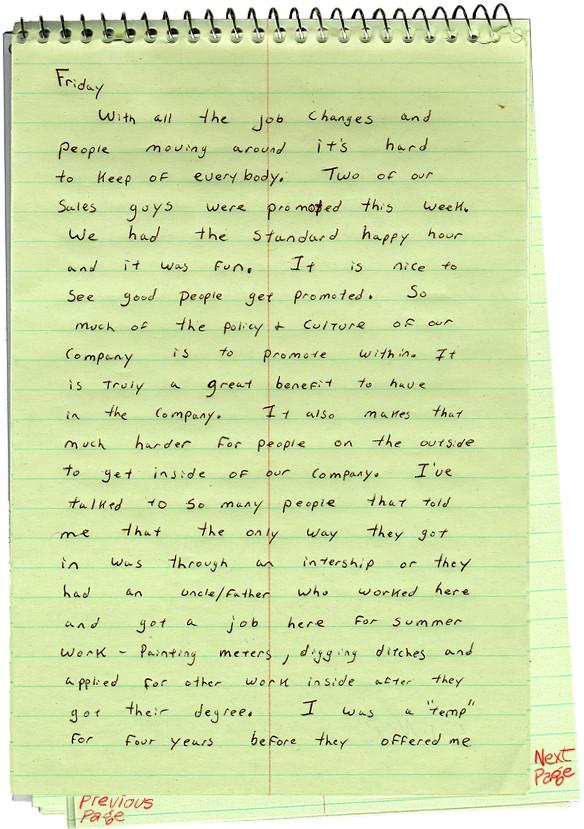 Friday
With all the job changes and
people moving around it's hard
to keep of everybody. Two of our
Sales guys were promoted this week.
We had the standard happy hour
and it was fun. It is nice to
see good people get promoted. So
much of the policy + culture of our
company is to promote within. It
is truly a great benefit to have
in the company. It also makes that
much harder for people on the outside
to get inside of our company. I've
talked to so many people that told
me that the only way they got
in was through an intership or they
had an uncle/father who worked here
and got a job here for summer
work - Painting meters, digging ditches and
applied for other work inside after they
got their degree. I was a "temp"
for four years before they offered me
Next
Page
Previous
Page